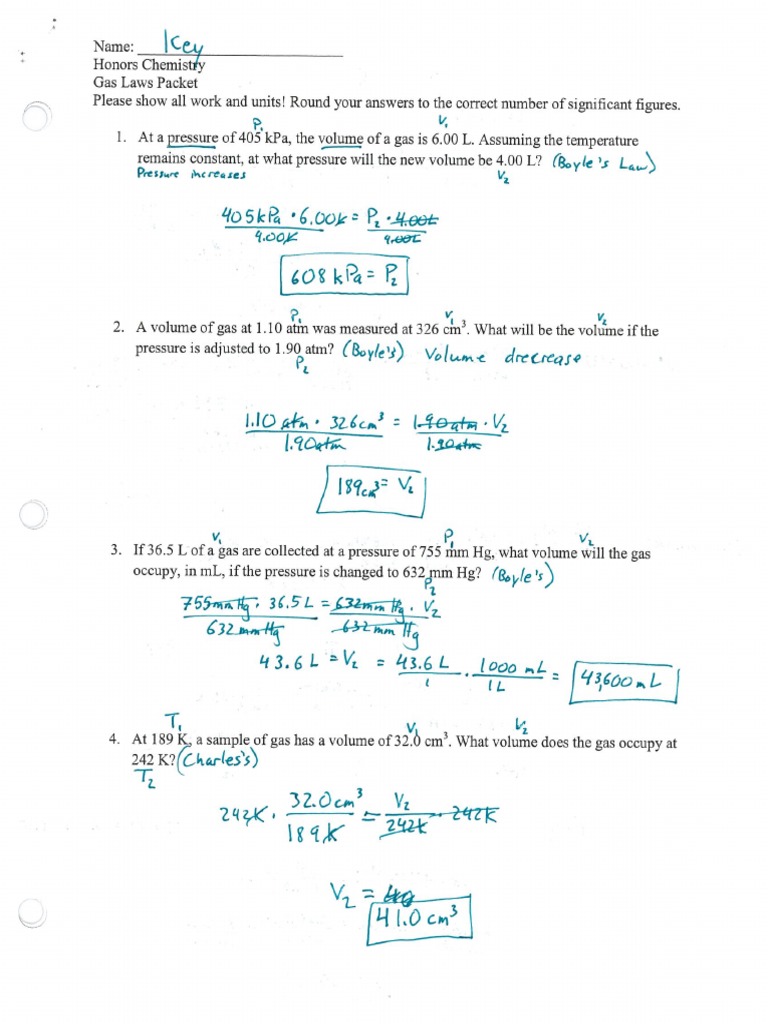 Name: Key
Honors Chemistry
Gas Laws Packet
Please show all work and units! Round your answers to the correct number of significant figures.
P1 V1
1. At a pressure of 405 kPa, the volume of a gas is 6.00 L. Assuming the temperature
remains constant, at what pressure will the new volume be 4.00 L? (Boyle's Law)
Pressure increases V2
405kPa · 6.00L = P2 · 4.00L
4.00L 4.00L
608 kPa = P2
P1 V1 V2
2. A volume of gas at 1.10 atm was measured at 326 cm³. What will be the volume if the
pressure is adjusted to 1.90 atm? (Boyle's) Volume drecrease
P2
1.10 atm · 326cm³ = 1.90atm · V2
1.90atm 1.90atm
189cm³ = V2
V1 P1 V2
3. If 36.5 L of a gas are collected at a pressure of 755 mm Hg, what volume will the gas
occupy, in mL, if the pressure is changed to 632 mm Hg? (Boyle's)
P2
755mmHg · 36.5L = 632mm Hg · V2
632mmHg 632mm Hg
43.6 L = V2 = 43.6 L · 1000 mL = 43,600 mL
1 1L
T1 V1 V2
4. At 189 K, a sample of gas has a volume of 32.0 cm³. What volume does the gas occupy at
242 K? (Charles's)
T2
242K · 32.0cm³ = V2 · 242K
189K 242K
V2 =
41.0 cm³